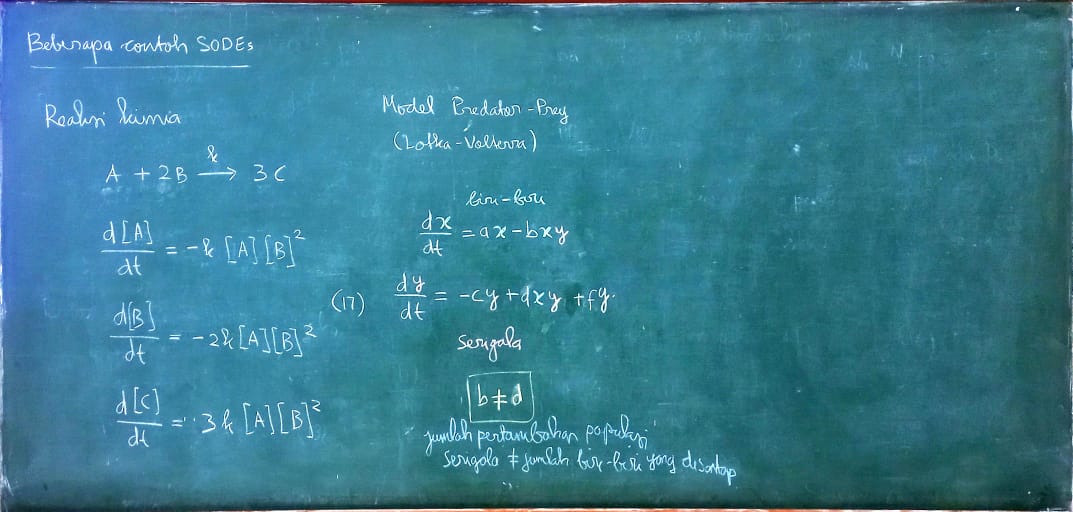 Beberapa contoh SODEs
Reaksi kimia
A + 2B \xrightarrow{k} 3C
\frac{d[A]}{dt} = -k [A][B]^2
\frac{d[B]}{dt} = -2k [A][B]^2
\frac{d[C]}{dt} = 3k [A][B]^2
Model Predator-Prey
(Lotka-Volterra)
biri-biri
\frac{dx}{dt} = ax - bxy
(17) \frac{dy}{dt} = -cy + dxy + fy.
serigala
b ≠ d
jumlah pertambahan populasi
serigala ≠ jumlah biri-biri yang disantap